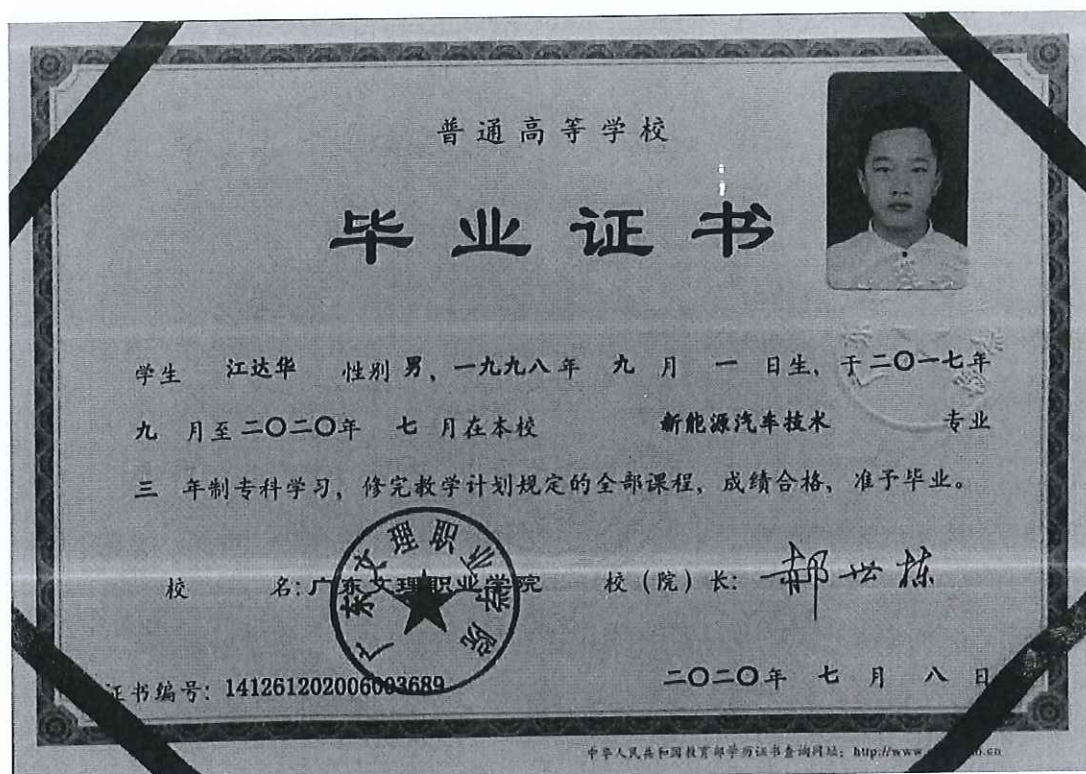 普通高等学校
毕业证书
学生 江达华 性别 男，一九九八年 九 月 一 日生，于二〇一七年
九 月至二〇二〇年 七 月在本校 新能源汽车技术 专业
三 年制专科学习，修完教学计划规定的全部课程，成绩合格，准予毕业。
校 名：广东文理职业学院 校（院）长：郝世栋
广东文理职业学院
证书编号：141261202006003689 二〇二〇年 七 月 八 日
中华人民共和国教育部学历证书查询网址：http://www.